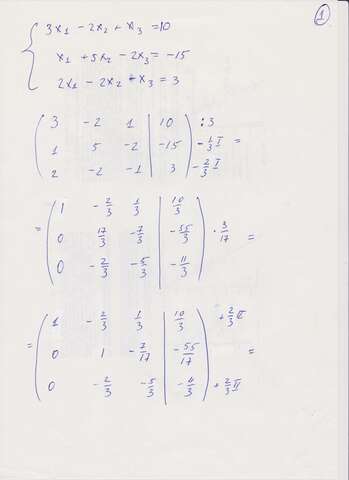 1
3x₁ - 2x₂ + x₃ = 10
x₁ + 5x₂ - 2x₃ = -15
2x₁ - 2x₂ - x₃ = 3
3 -2 1 | 10 :3
1 5 -2 | -15 -1/3 I =
2 -2 -1 | 3 -2/3 I
1 -2/3 1/3 | 10/3
= 0 17/3 -7/3 | -55/3 · 3/17 =
0 -2/3 -5/3 | -11/3
1 -2/3 1/3 | 10/3 +2/3 II
= 0 1 -7/17 | -55/17 =
0 -2/3 -5/3 | -11/3 +2/3 II